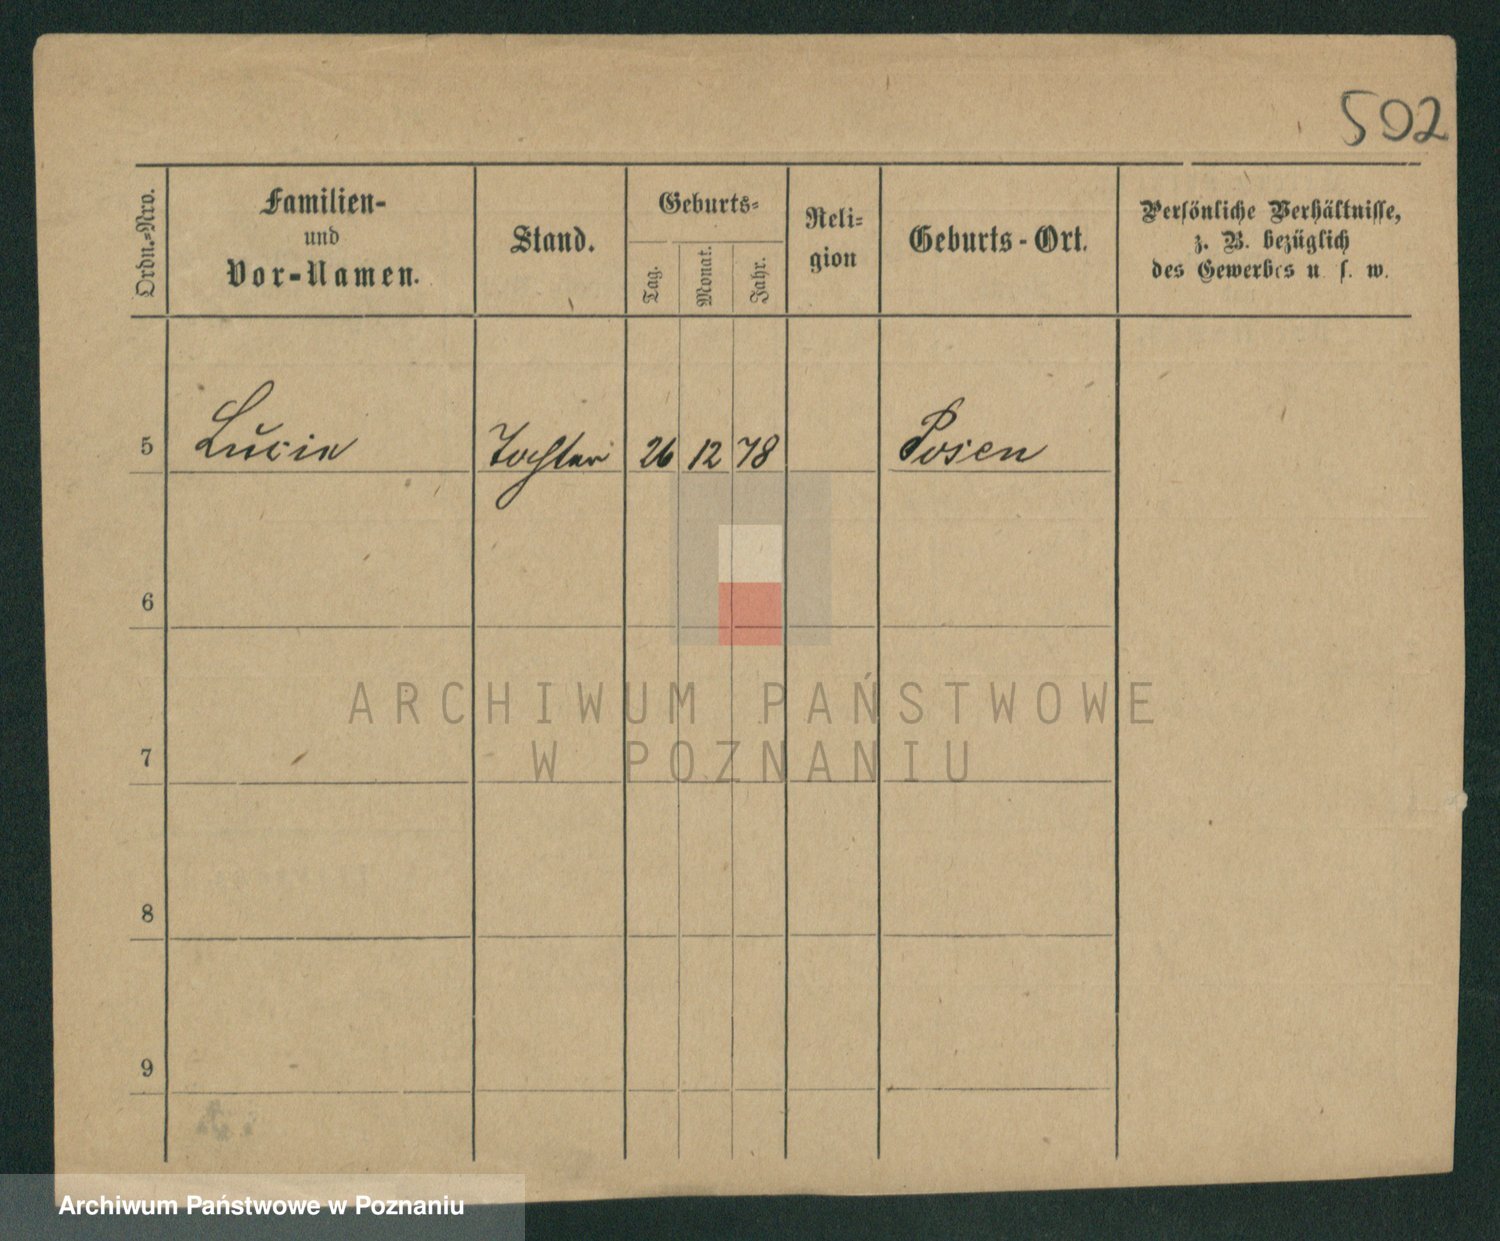 502
Ordn.-Nro.
Familien-
und
Vor-Namen.
Stand.
Geburts-
Tag.
Monat.
Jahr.
Reli-
gion
Geburts-Ort.
Persönliche Verhältnisse,
z. B. bezüglich
des Gewerbes u. s. w.
5 Lucie Tochter 26 12 78 Posen
6
7
8
9
ARCHIWUM PAŃSTWOWE
W POZNANIU
Archiwum Państwowe w Poznaniu